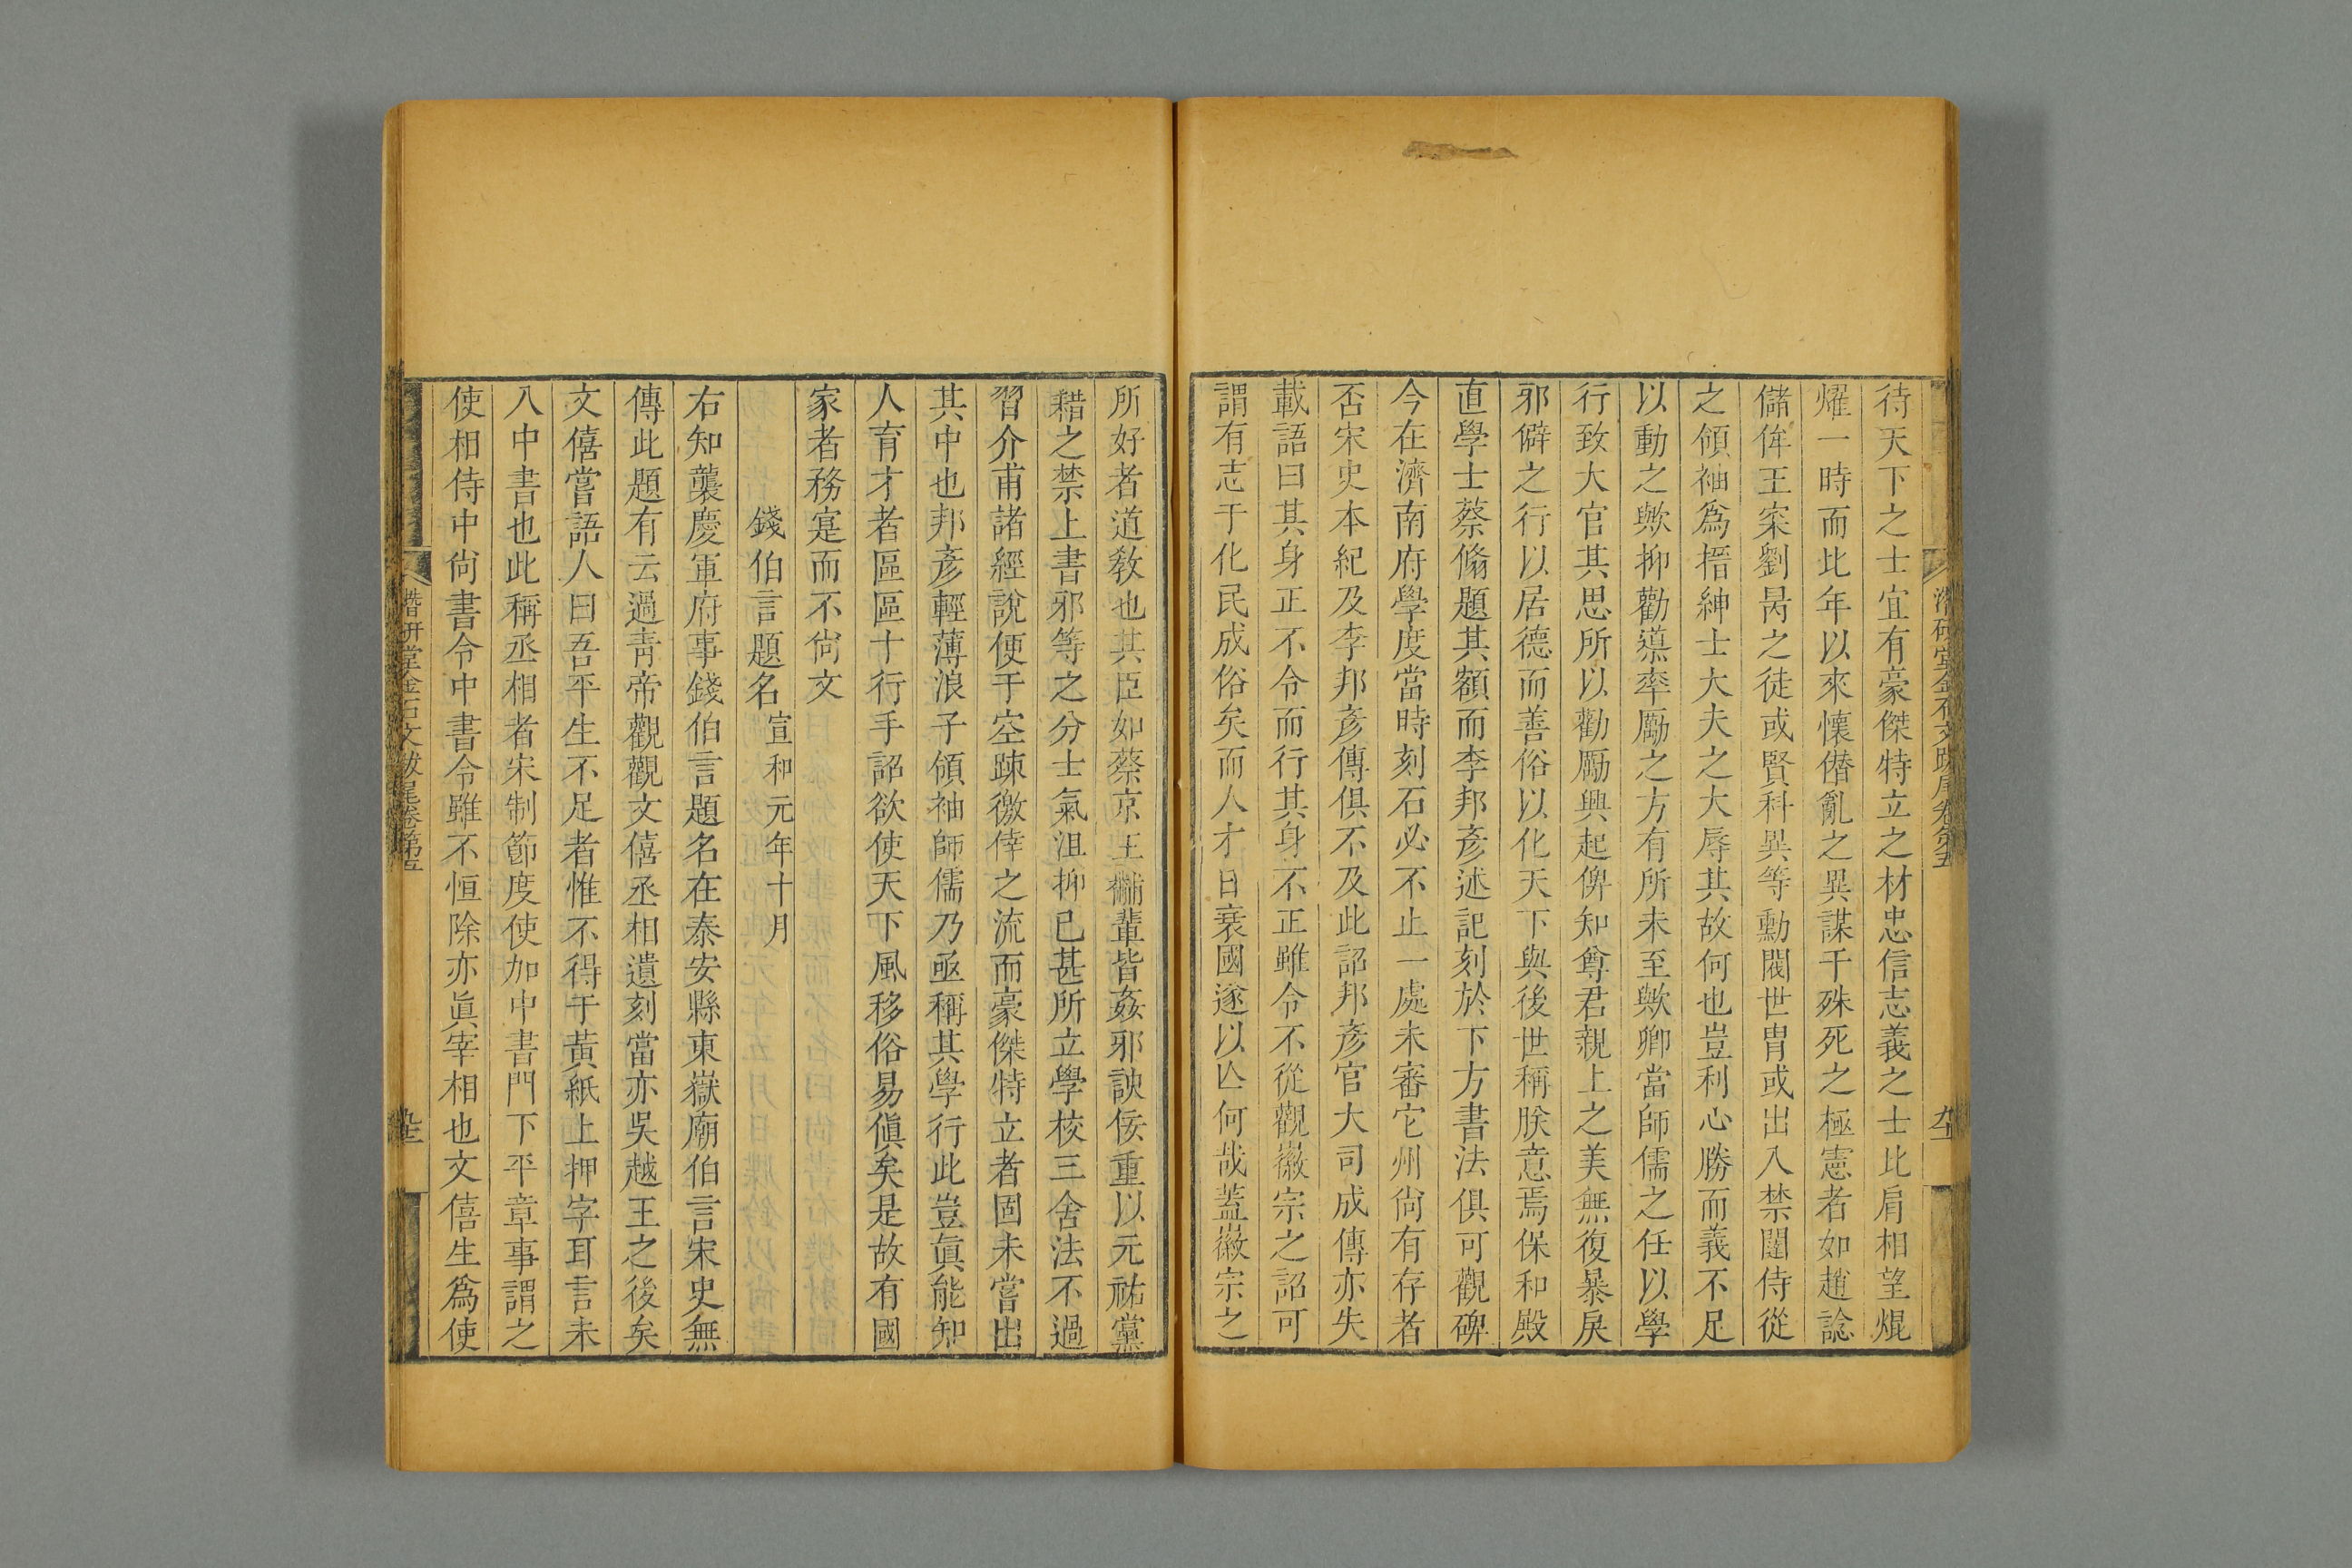 待天下之士宜有豪傑特立之材忠信志義之士比肩相望焜
燿一時而比年以來懷僭亂之異謀干殊死之極憲者如趙諗
儲侔王寀劉昺之徒或賢科異等勳閥世胄或出入禁闥侍從
之領袖爲搢紳士大夫之大辱其故何也豈利心勝而義不足
以動之歟抑勸導率厲之方有所未至歟卿當師儒之任以學
行致大官其思所以勸厲興起俾知尊君親上之美無復暴戾
邪僻之行以居德而善俗以化天下與後世稱朕意焉保和殿
直學士蔡翛題其額而李邦彥述記刻於下方書法俱可觀碑
今在濟南府學度當時刻石必不止一處未審它州尙有存者
否宋史本紀及李邦彥傳俱不及此詔邦彥官大司成傳亦失
載語曰其身正不令而行其身不正雖令不從觀徽宗之詔可
謂有志于化民成俗矣而人才日衰國遂以亾何哉蓋徽宗之
所好者道教也其臣如蔡京王黼輩皆姦邪諛佞重以元祐黨
籍之禁上書邪等之分士氣沮抑已甚所立學校三舍法不過
習介甫諸經說便于空疎徼倖之流而豪傑特立者固未嘗出
其中也邦彥輕薄浪子領袖師儒乃亟稱其學行此豈眞能知
人育才者區區十行手詔欲使天下風移俗易傎矣是故有國
家者務寔而不尙文
錢伯言題名 宣和元年十月
右知襲慶軍府事錢伯言題名在泰安縣東嶽廟伯言宋史無
傳此題有云過靑帝觀觀文僖丞相遺刻當亦吳越王之後矣
文僖嘗語人曰吾平生不足者惟不得于黃紙上押字耳言未
入中書也此稱丞相者宋制節度使加中書門下平章事謂之
使相侍中尙書令中書令雖不恒除亦眞宰相也文僖生爲使
潛研堂金石文跋尾卷第五